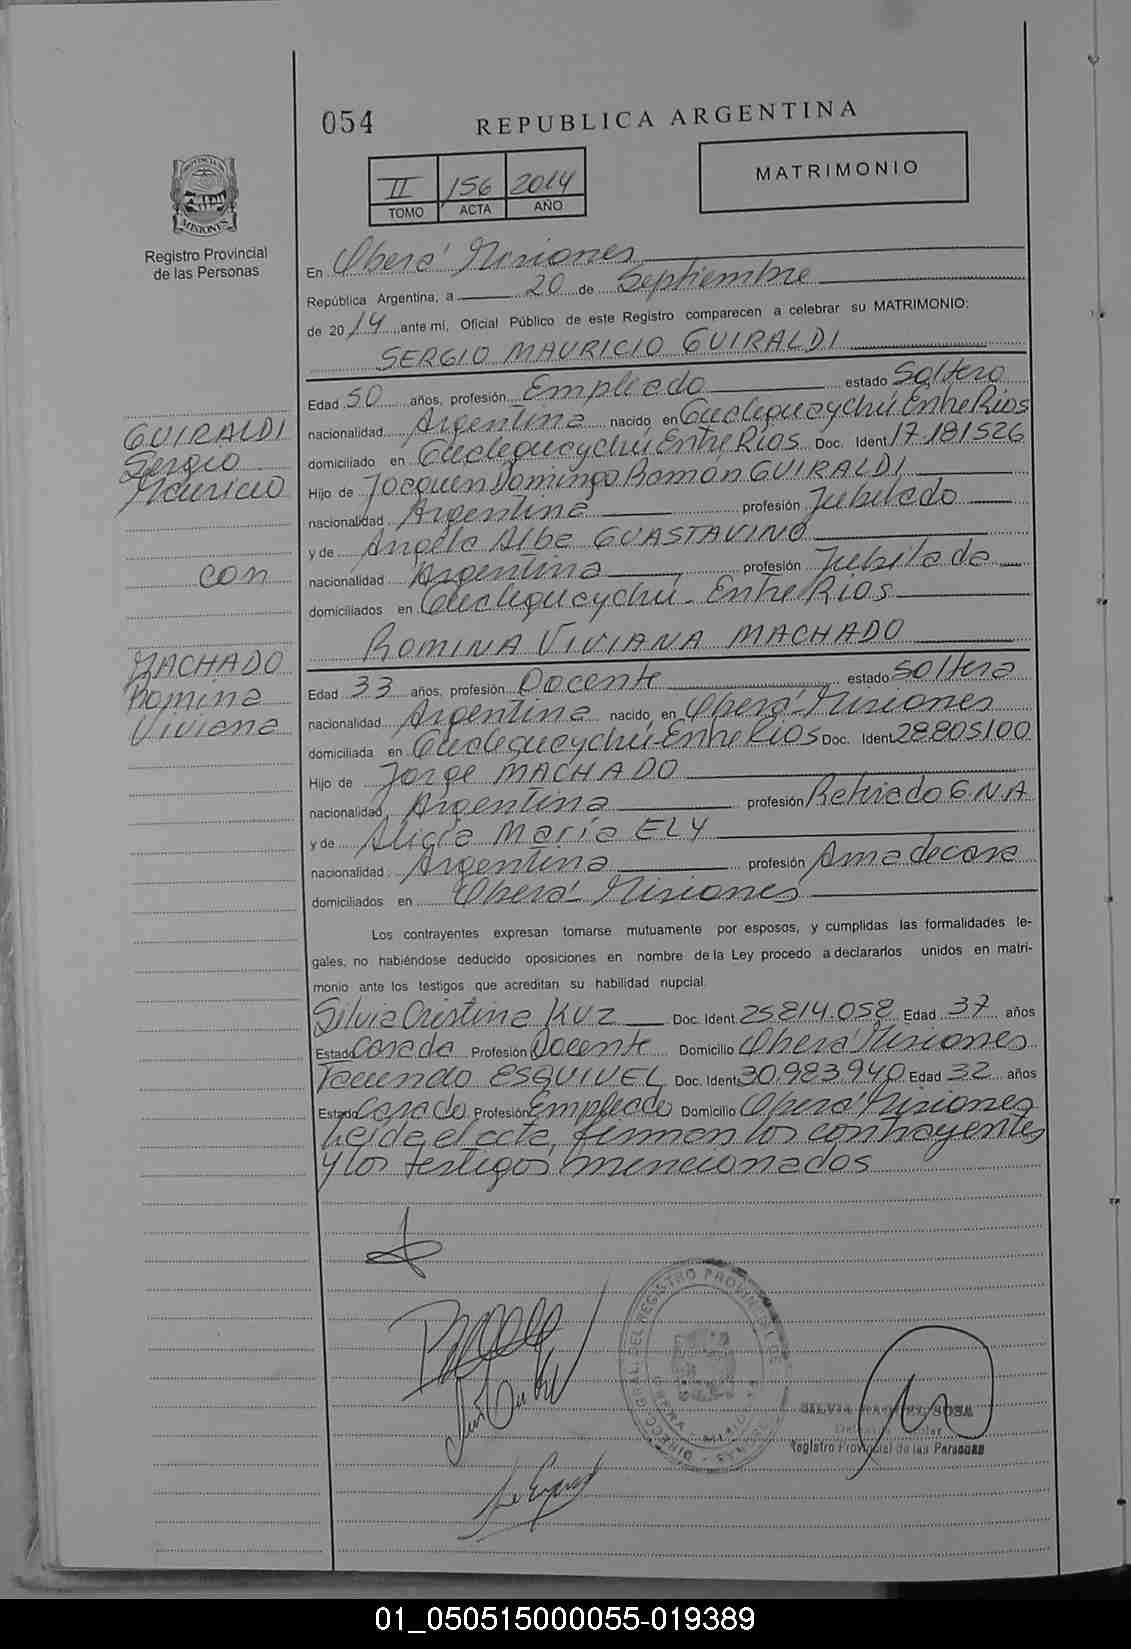 054 REPUBLICA ARGENTINA
PROVINCIA DE MISIONES
Registro Provincial
de las Personas
II 156 2014
TOMO ACTA AÑO
MATRIMONIO
En Oberá Misiones
República Argentina, a 20 de Septiembre
de 2014 ante mí, Oficial Público de este Registro comparecen a celebrar su MATRIMONIO:
SERGIO MAURICIO GUIRALDI
Edad 50 años, profesión Empleado estado Soltero
nacionalidad Argentina nacido en Gualeguaychú Entre Ríos
domiciliado en Gualeguaychú Entre Ríos Doc. Ident 17181526
Hijo de Joaquin Domingo Ramón GUIRALDI
nacionalidad Argentina profesión Jubilado
y de Angela Alba GUASTAVINO
nacionalidad Argentina profesión Jubilada
domiciliados en Gualeguaychú - Entre Ríos
GUIRALDI
Sergio
Mauricio
con
MACHADO
Romina
Viviana
ROMINA VIVIANA MACHADO
Edad 33 años, profesión Docente estado Soltera
nacionalidad Argentina nacido en Oberá - Misiones
domiciliada en Gualeguaychú - Entre Ríos Doc. Ident. 28805100
Hijo de Jorge MACHADO
nacionalidad Argentina profesión Retirado G.N.A
y de Alicia María ELY
nacionalidad Argentina profesión Ama de casa
domiciliados en Oberá - Misiones
Los contrayentes expresan tomarse mutuamente por esposos, y cumplidas las formalidades le-
gales, no habiéndose deducido oposiciones en nombre de la Ley procedo a declararlos unidos en matri-
monio ante los testigos que acreditan su habilidad nupcial.
Silvia Cristina KUZ Doc. Ident. 25.814.058 Edad 37 años
Estado Casada Profesión Docente Domicilio Oberá Misiones
Facundo ESQUIVEL Doc. Ident. 30.983.940 Edad 32 años
Estado Casado Profesión Empleado Domicilio Oberá Misiones
Leída el acta, firman los contrayentes
y los testigos mencionados
SILVIA SOSA
Registro Provincial de las Personas
01_050515000055-019389